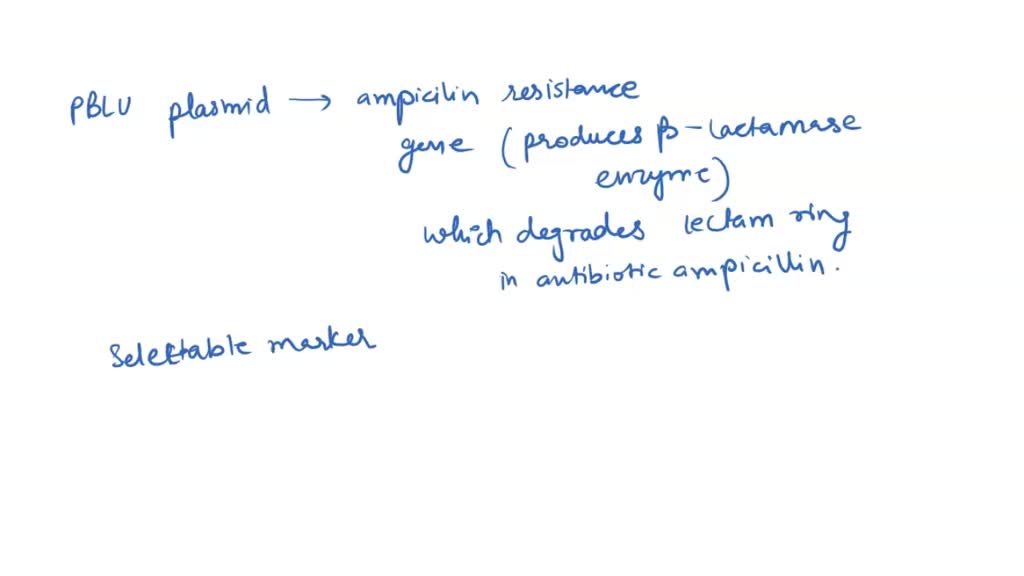 PBLU plasmid → ampicilin resistance
gene (produces β-lactamase
enzyme)
which degrades lectam ring
in antibiotic ampicillin.
Selectable marker